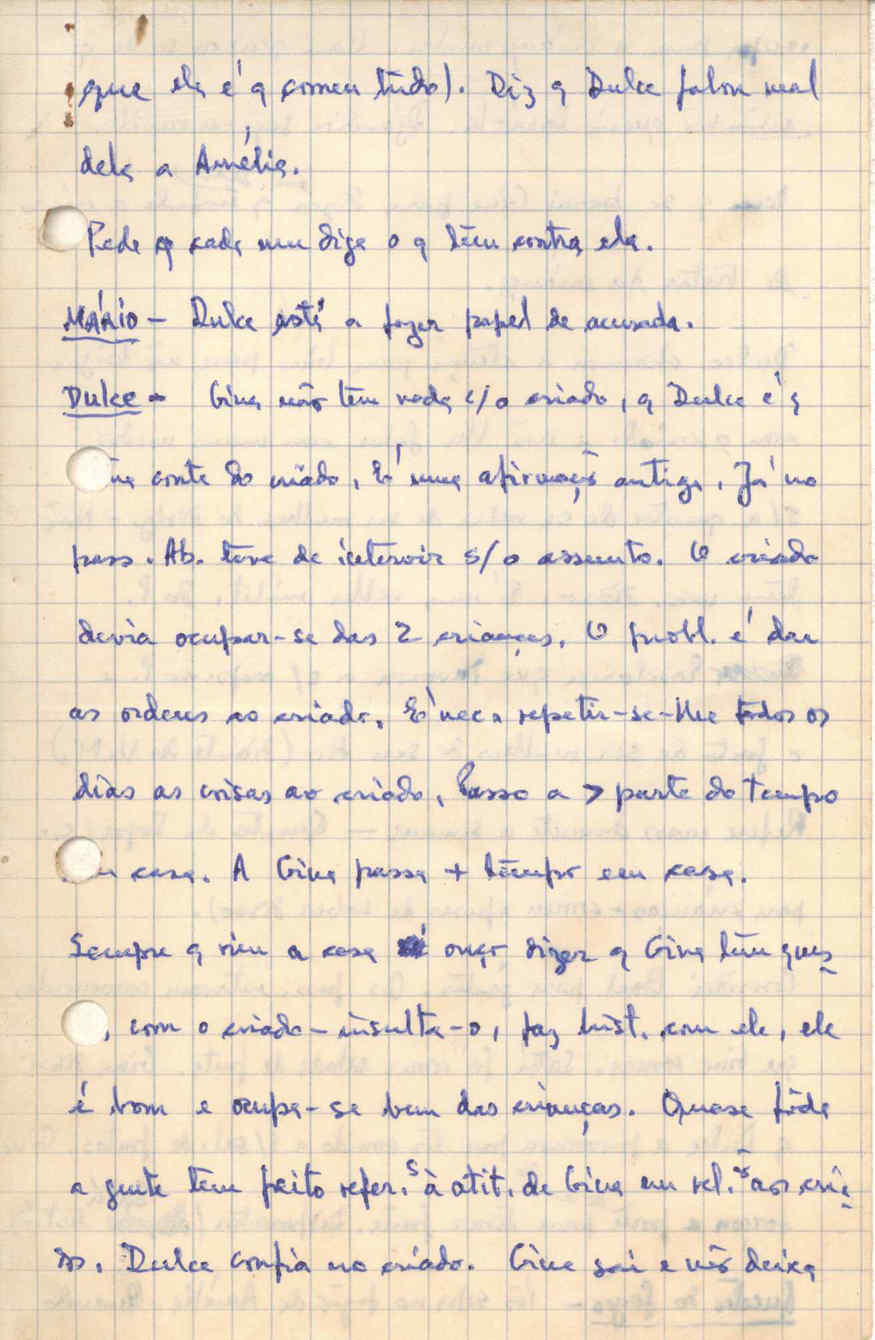 que ela é q comeu tudo). Diz q Dulce falou mal
dela a Amélia.
Pede q cada um diga o q têm contra ela.
MÁRIO – Dulce está a fazer papel de acusada.
DULCE – Gina não tem nada c/ o criado, q Dulce é q
conta do criado. É uma afirmação antiga. Já no
pass. Ab. teve de intervir s/ o assunto. O criado
devia ocupar-se das 2 crianças. O probl. é dar
as ordens ao criado. É nec. repetir-se-lhe todos os
dias as coisas ao criado. Passo a > parte do tempo
casa. A Gina passa + tempo em casa.
Sempre q vim a casa ouço dizer q Gina tem ques
, com o criado – insulta-o, faz hist. com ele, ele
é bom e ocupa-se bem das crianças. Quase tôda
a gente tem feito refer.s à atit. de Gina em rel.ão aos cria-
dos. Dulce confia no criado. Gina sai e não deixa